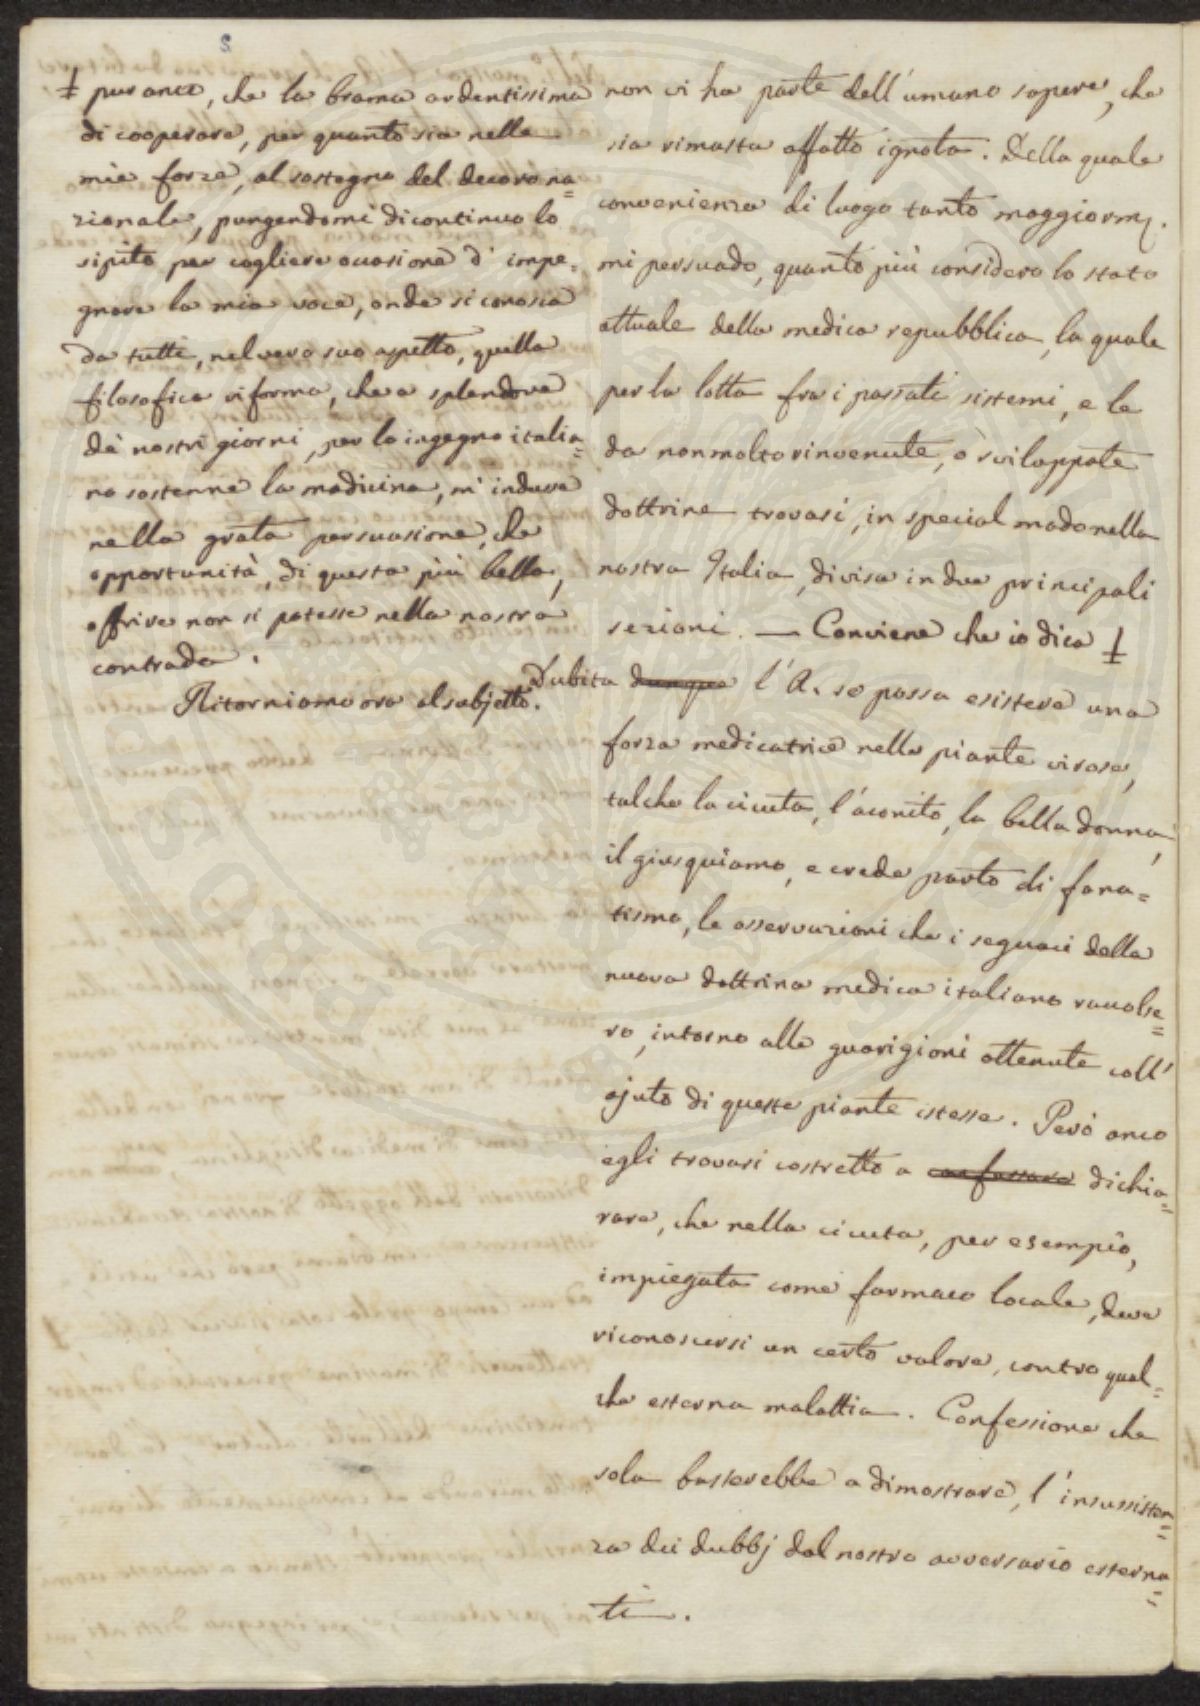 S.
‡ pur anco, che la brama ardentissima
di cooperare, per quanto sia nelle
mie forze, al sostegno del decoro na=
zionale, pungendomi di continuo lo
spirito per cogliere occasione d' impe=
gnare la mia voce, onde si conosca
da tutti, nel vero suo aspetto, quella
filosofica riforma, che a splendore
de' nostri giorni, per lo ingegno italia=
no sostenne la medicina, m' induce
nella grata persuasione, che
opportunità, di questa più bella,
offrire non si potesse nella nostra
contrada.
Ritorniamo ora al subjetto.
non vi ha parte dell' umano sapere, che
sia rimasta affatto ignota. Della quale
convenienza di luogo tanto maggiorm.
mi persuado, quanto più considero lo stato
attuale della medica repubblica, la quale
per la lotta fra i passati sistemi, e le
da non molto rinvenute, o sviluppate
dottrine trovasi, in special modo nella
nostra Italia, divisa in due principali
sezioni. — Conviene che io dica ‡
Dubita dunque l' A. se possa esistere una
forza medicatrice nelle piante virose,
talche la cicuta, l' aconito, la bella donna,
il giusquiamo, e crede parto di fana=
tismo, le osservazioni che i seguaci della
nuova dottrina medica italiana raccolse=
ro, intorno alle guarigioni ottenute coll'
ajuto di queste piante istesse. Però anco
egli trovasi costretto a confessare dichia=
rare, che nella cicuta, per esempio,
impiegata come farmaco locale, deve
riconoscersi un certo valore, contro qual=
che esterna malattia. Confessione che
sola basterebbe a dimostrare, l' insussisten=
za dei dubbj dal nostro avversario esterna=
ti.